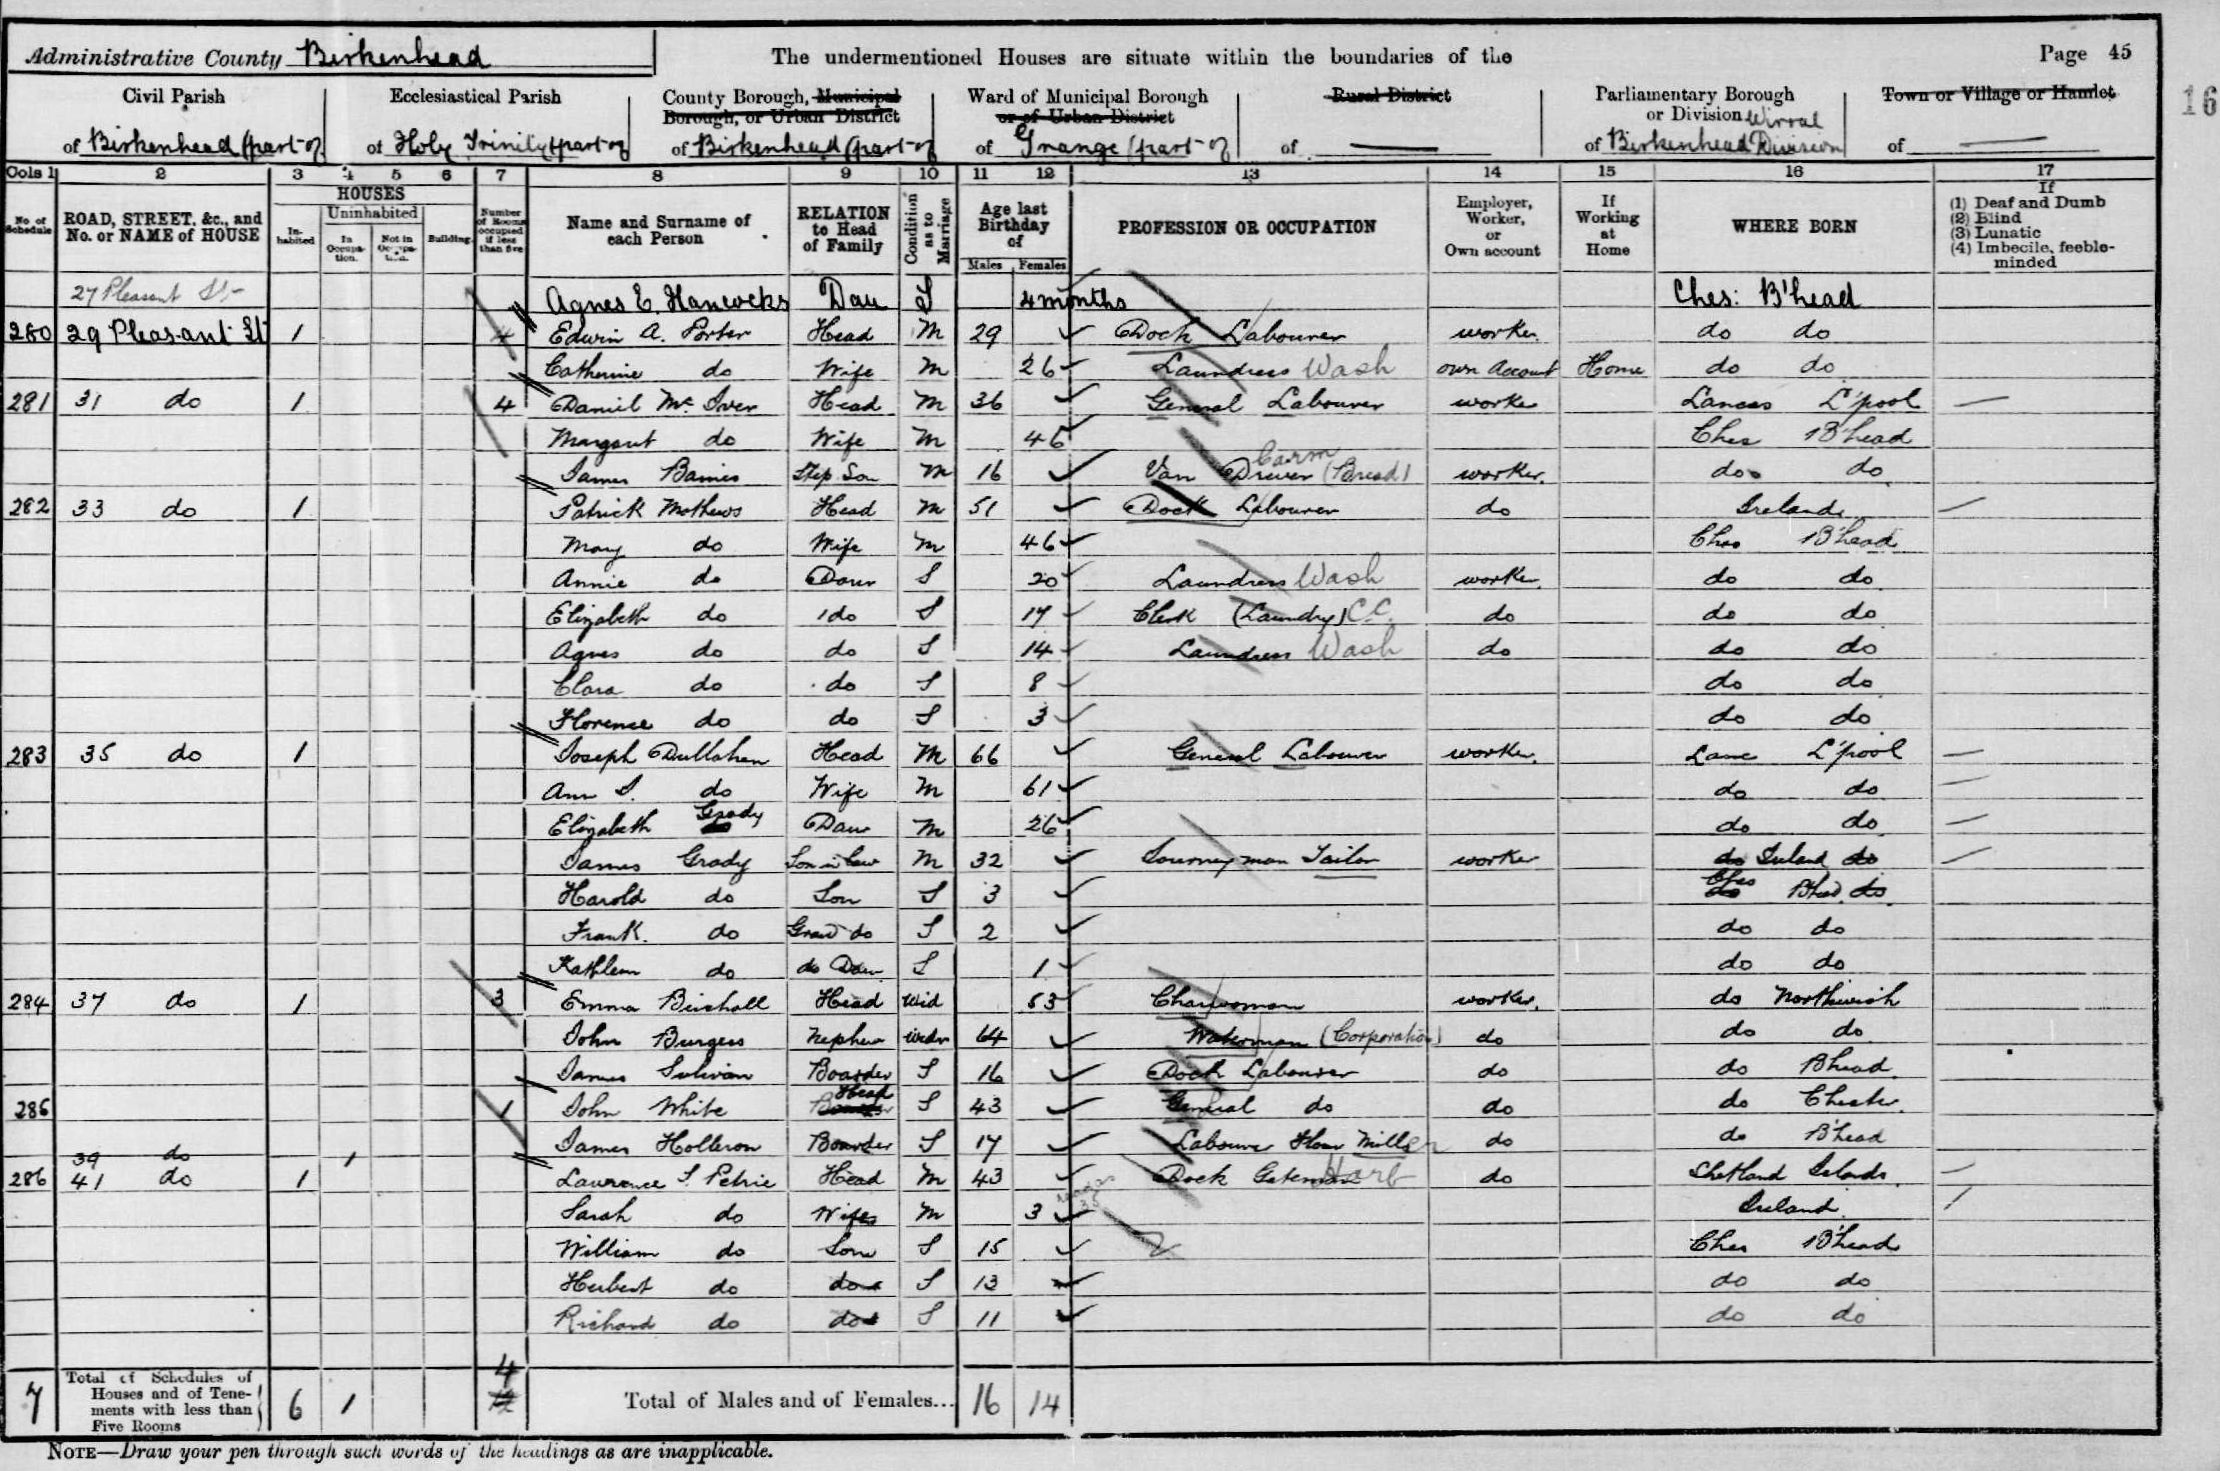 Administrative County Birkenhead The undermentioned Houses are situate within the boundaries of the Page 45
16
Civil Parish Ecclesiastical Parish County Borough, Municipal Borough, or Urban District Ward of Municipal Borough or of Urban District Rural District Parliamentary Borough or Division Wirral Town or Village or Hamlet
of Birkenhead (part of of Holy Trinity (part of of Birkenhead (part of of Grange (part of of — of Birkenhead Division of —
Cols 1 2 3 4 5 6 7 8 9 10 11 12 13 14 15 16 17
No of Schedule ROAD, STREET, &c., and No. or NAME of HOUSE HOUSES Inhabited Uninhabited In Occupation. Not in Occupation. Building Number of Rooms occupied if less than five Name and Surname of each Person RELATION to Head of Family Condition as to Marriage Age last Birthday of Males Females PROFESSION OR OCCUPATION Employer, Worker, or Own account If Working at Home WHERE BORN If (1) Deaf and Dumb (2) Blind (3) Lunatic (4) Imbecile, feeble-minded
27 Pleasant St Agnes E. Hancocks Dau S 4 months Ches: B'head
280 29 Pleasant St 1 4 Edwin A. Porter Head M 29 Dock Labourer worker do do
Catherine do Wife M 26 Laundress Wash own Account Home do do
281 31 do 1 4 Daniel Mc Iver Head M 36 General Labourer worker Lancas L'pool —
Margaret do Wife M 46 Ches B'head
James Barnes Step Son M 16 Van Driver (Bread) Carm worker. do do
282 33 do 1 Patrick Mathews Head M 51 Dock Labourer do Ireland —
Mary do Wife M 46 Ches B'head
Annie do Daur S 20 Laundress Wash worker. do do
Elizabeth do do S 17 Clerk (Laundry) C.C. do do do
Agnes do do S 14 Laundress Wash do do do
Clara do do S 8 do do
Florence do do S 3 do do
283 35 do 1 Joseph Dullahan Head M 66 General Labourer worker. Lanc L'pool —
Ann S. do Wife M 61 do do —
Elizabeth do Grady Daur M 26 do do —
James Grady Son in law M 32 Journeyman Tailor worker do Ireland do —
Harold do Son S 3 do Ches B'head do
Frank. do Grand do S 2 do do
Kathleen do do Daur S 1 do do
284 37 do 1 3 Emma Birchall Head Wid 63 Charwoman worker. do Northwich
John Burgess Nephew Widr 44 Waterman (Corporation) do do do
James Sulivan Boarder S 16 Dock Labourer do do B'head
285 1 John White Boarder Head S 43 General do do do Chester.
James Holleron Boarder S 17 Labourer Flour Miller do do B'head
39 do 1
286 41 do 1 Lawrence J. Petrie Head M 43 Dock Gateman Harb do Shetland Islands. —
Sarah do Wife M 3 Ireland. /
William do Son S 15 Ches B'head
Herbert do do S 13 do do
Richard do do S 11 do do
7 Total of Schedules of Houses and of Tenements with less than Five Rooms 6 1 4 Total of Males and of Females... 16 14
NOTE—Draw your pen through such words of the headings as are inapplicable.